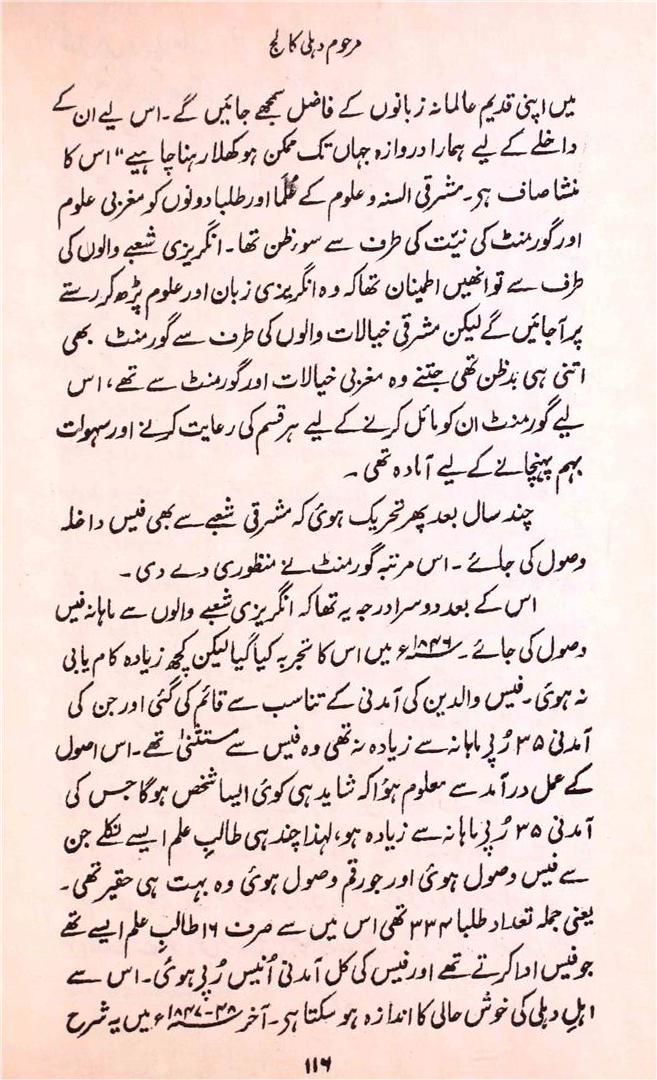 مرحوم دہلی کالج
میں اپنی قدیم عالمانہ زبانوں کے فاضل سمجھے جائیں گے۔ اس لیے ان کے
داخلے کے لیے ہمارا دروازہ جہاں تک ممکن ہو کھلا رہنا چاہیے“ اس کا
منشا صاف ہی۔ مشرقی السنہ و علوم کے عُلَما اور طلبا دونوں کو مغربی علوم
اور گورمنٹ کی نیّت کی طرف سے سوءِ ظن تھا۔ انگریزی شعبے والوں کی
طرف سے تو انھیں اطمینان تھا کہ وہ انگریزی زبان اور علوم پڑھ کر رستے
پر آجائیں گے لیکن مشرقی خیالات والوں کی طرف سے گورمنٹ بھی
اتنی ہی بدظن تھی جتنے وہ مغربی خیالات اور گورمنٹ سے تھے، اس
لیے گورمنٹ ان کو مائل کرنے کے لیے ہر قسم کی رعایت کرنے اور سہولت
بہم پہنچانے کے لیے آمادہ تھی۔
چند سال بعد پھر تحریک ہوئی کہ مشرقی شعبے سے بھی فیس داخلہ
وصول کی جائے۔ اس مرتبہ گورمنٹ نے منظوری دے دی۔
اس کے بعد دوسرا درجہ یہ تھا کہ انگریزی شعبے والوں سے ماہانہ فیس
وصول کی جائے۔ ۱۸۴۶ء میں اس کا تجربہ کیا گیا لیکن کچھ زیادہ کام یابی
نہ ہوئی۔ فیس والدین کی آمدنی کے تناسب سے قائم کی گئی اور جن کی
آمدنی ۳۵ رُپی ماہانہ سے زیادہ نہ تھی وہ فیس سے مستثنیٰ تھے۔ اس اصول
کے عمل درآمد سے معلوم ہوا کہ شاید ہی کوئی ایسا شخص ہوگا جس کی
آمدنی ۳۵ رُپی ماہانہ سے زیادہ ہو، لہٰذا چند ہی طالبِ علم ایسے نکلے جن
سے فیس وصول ہوئی اور جو رقم وصول ہوئی وہ بہت ہی حقیر تھی۔
یعنی جملہ تعداد طلبا ۳۳۴ تھی اس میں سے صرف ۱۶ طالبِ علم ایسے تھے
جو فیس ادا کرتے تھے اور فیس کی کل آمدنی اُنیس رُپی ہوئی۔ اس سے
اہلِ دہلی کی خوش حالی کا اندازہ ہو سکتا ہی۔ آخر ۴۸-۱۸۴۷ء میں یہ شرح
۱۱۶